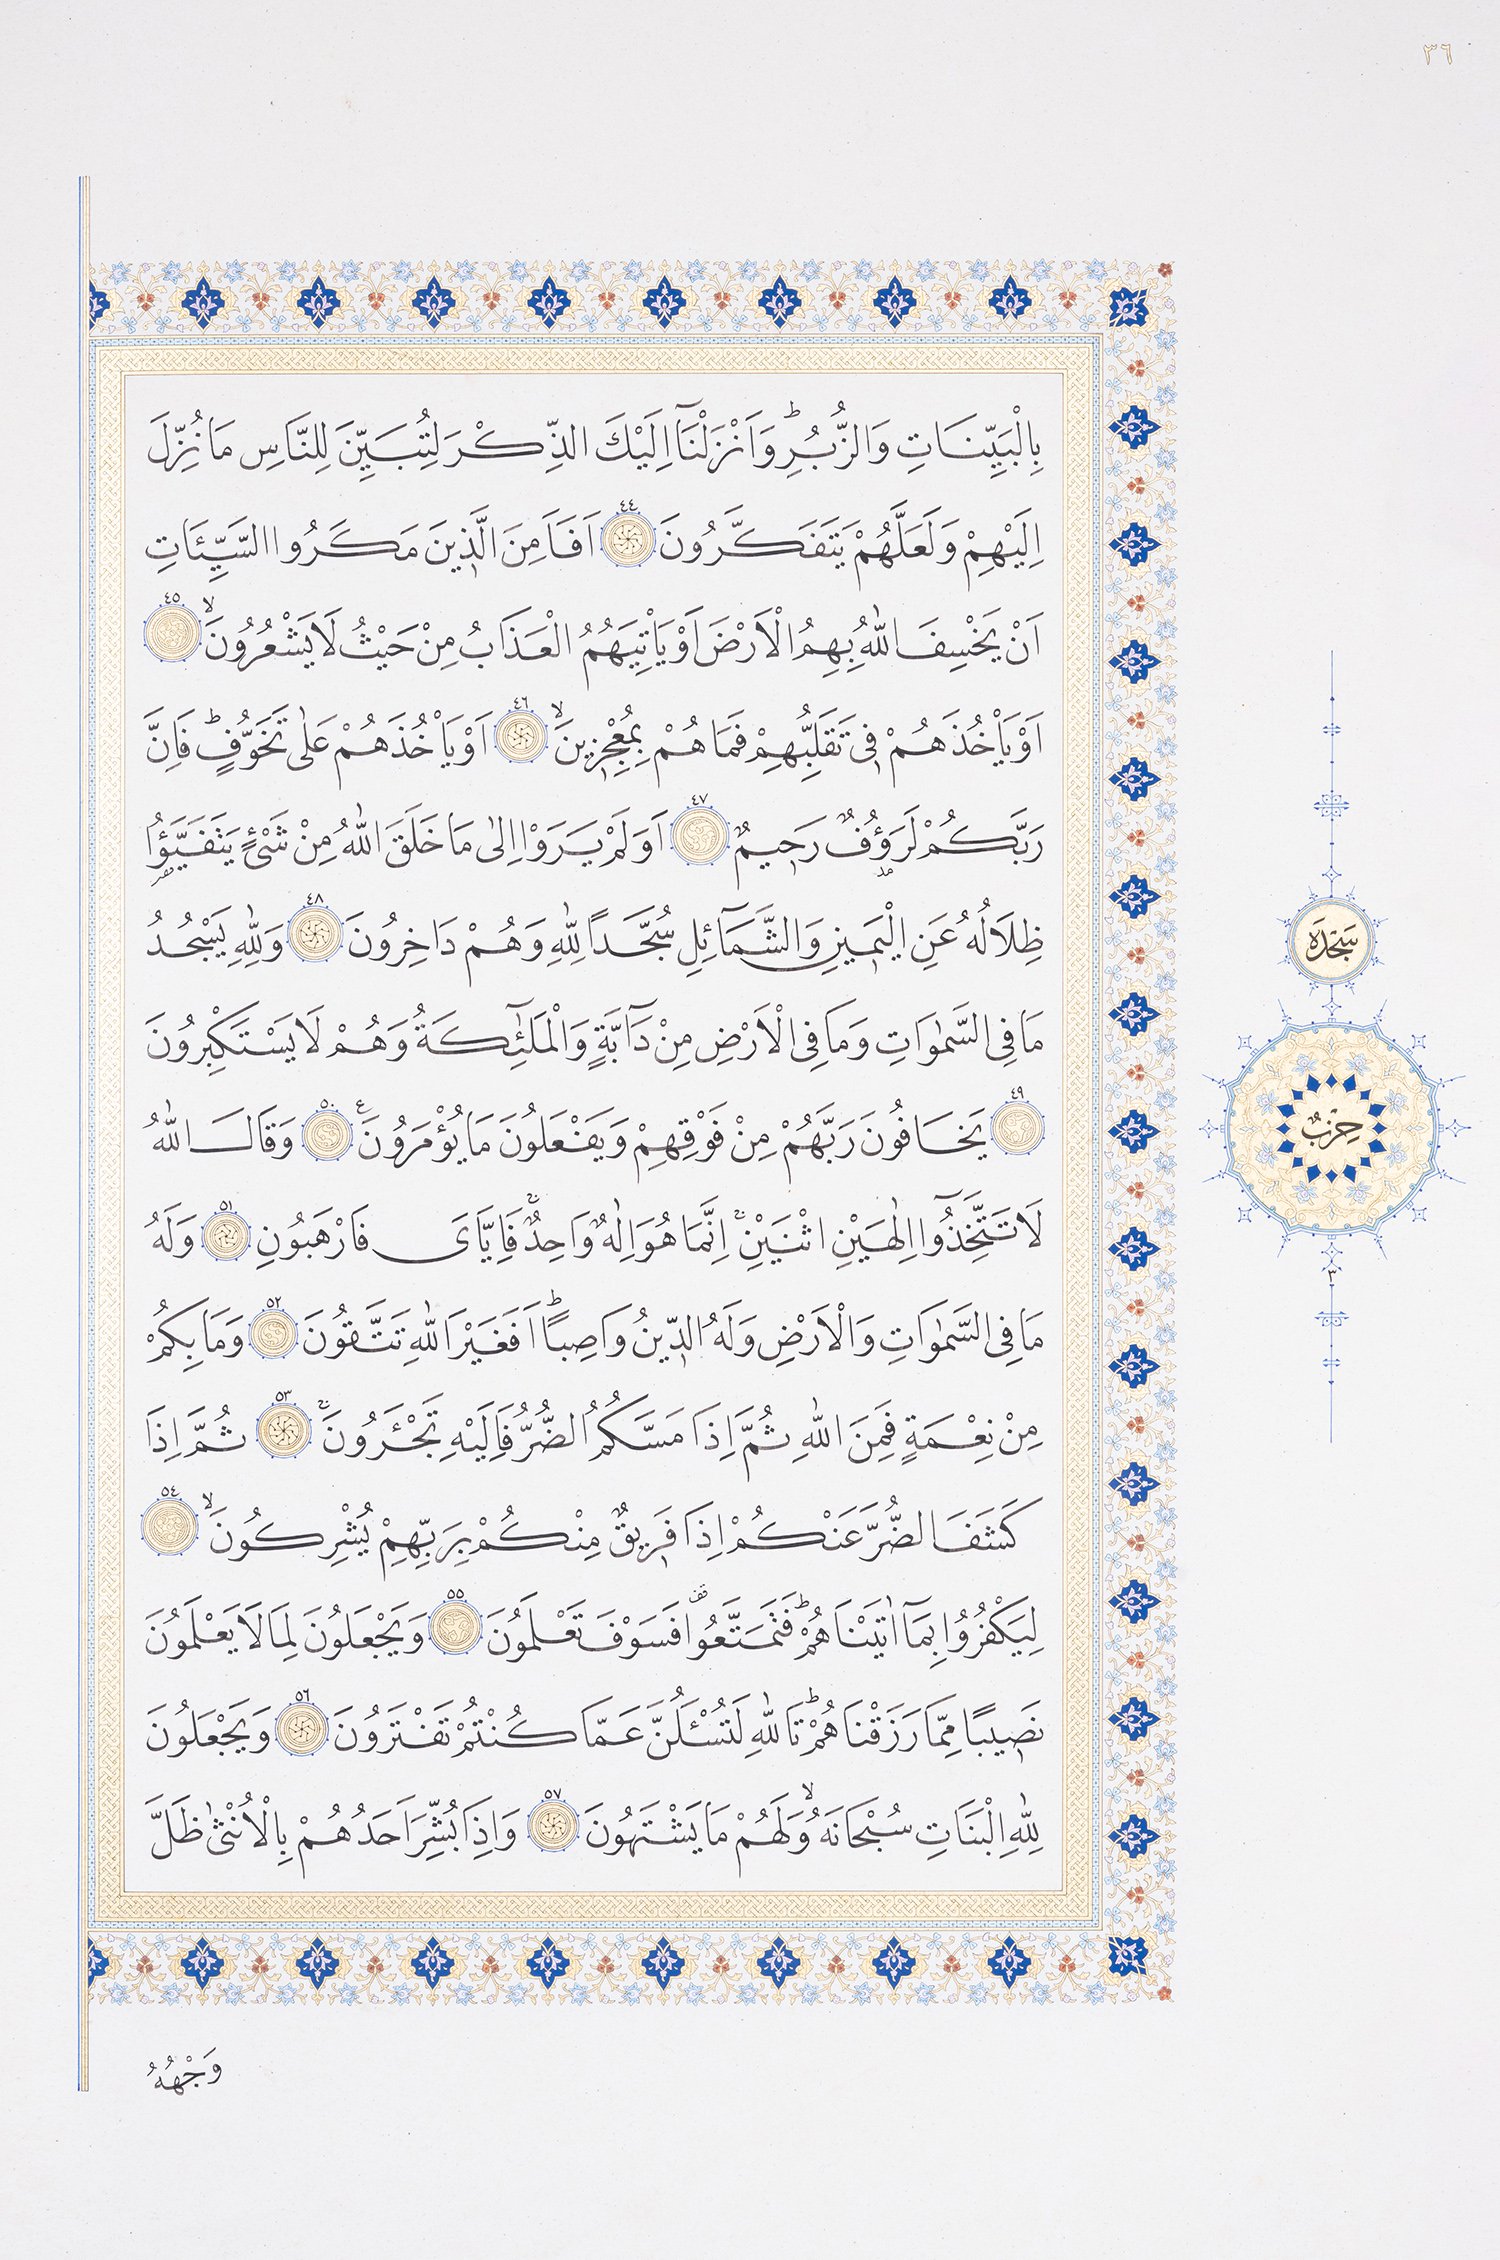 ٣٦
بِالْبَيِّنَاتِ وَالزُّبُرِؕ وَاَنْزَلْنَٓا اِلَيْكَ الذِّكْرَ لِتُبَيِّنَ لِلنَّاسِ مَا نُزِّلَ
اِلَيْهِمْ وَلَعَلَّهُمْ يَتَفَكَّرُونَ ٤٤ اَفَاَمِنَ الَّذ۪ينَ مَكَرُوا السَّيِّـَٔاتِ
اَنْ يَخْسِفَ اللّٰهُ بِهِمُ الْاَرْضَ اَوْ يَاْتِيَهُمُ الْعَذَابُ مِنْ حَيْثُ لَا يَشْعُرُونَۙ ٤٥
اَوْ يَاْخُذَهُمْ ف۪ي تَقَلُّبِهِمْ فَمَا هُمْ بِمُعْجِز۪ينَۙ ٤٦ اَوْ يَاْخُذَهُمْ عَلٰى تَخَوُّفٍؕ فَاِنَّ
رَبَّكُمْ لَرَؤُ۫فٌ رَح۪يمٌ ٤٧ اَوَلَمْ يَرَوْا اِلٰى مَا خَلَقَ اللّٰهُ مِنْ شَيْءٍ يَتَفَيَّؤُ۬ا
ظِلَالُهُ عَنِ الْيَم۪ينِ وَالشَّمَٓائِلِ سُجَّدًا لِلّٰهِ وَهُمْ دَاخِرُونَ ٤٨ وَلِلّٰهِ يَسْجُدُ
مَا فِي السَّمٰوَاتِ وَمَا فِي الْاَرْضِ مِنْ دَٓابَّةٍ وَالْمَلٰٓئِكَةُ وَهُمْ لَا يَسْتَكْبِرُونَ
٤٩ يَخَافُونَ رَبَّهُمْ مِنْ فَوْقِهِمْ وَيَفْعَلُونَ مَا يُؤْمَرُونَ ع ٥٠ وَقَالَ اللّٰهُ
لَا تَتَّخِذُٓوا اِلٰهَيْنِ اثْنَيْنِۚ اِنَّمَا هُوَ اِلٰهٌ وَاحِدٌۚ فَاِيَّايَ فَارْهَبُونِ ٥١ وَلَهُ
مَا فِي السَّمٰوَاتِ وَالْاَرْضِ وَلَهُ الدّ۪ينُ وَاصِبًاؕ اَفَغَيْرَ اللّٰهِ تَتَّقُونَ ٥٢ وَمَا بِكُمْ
مِنْ نِعْمَةٍ فَمِنَ اللّٰهِ ثُمَّ اِذَا مَسَّكُمُ الضُّرُّ فَاِلَيْهِ تَجْـَٔرُونَۚ ٥٣ ثُمَّ اِذَا
كَشَفَ الضُّرَّ عَنْكُمْ اِذَا فَر۪يقٌ مِنْكُمْ بِرَبِّهِمْ يُشْرِكُونَۙ ٥٤
لِيَكْفُرُوا بِمَٓا اٰتَيْنَاهُمْؕ فَتَمَتَّعُوا۠ فَسَوْفَ تَعْلَمُونَ ٥٥ وَيَجْعَلُونَ لِمَا لَا يَعْلَمُونَ
نَص۪يبًا مِمَّا رَزَقْنَاهُمْؕ تَاللّٰهِ لَتُسْـَٔلُنَّ عَمَّا كُنْتُمْ تَفْتَرُونَ ٥٦ وَيَجْعَلُونَ
لِلّٰهِ الْبَنَاتِ سُبْحَانَهُۙ وَلَهُمْ مَا يَشْتَهُونَ ٥٧ وَاِذَا بُشِّرَ اَحَدُهُمْ بِالْاُنْثٰى ظَلَّ
وَجْهُهُ
سَجْدَه
حِزْبٌ
٣